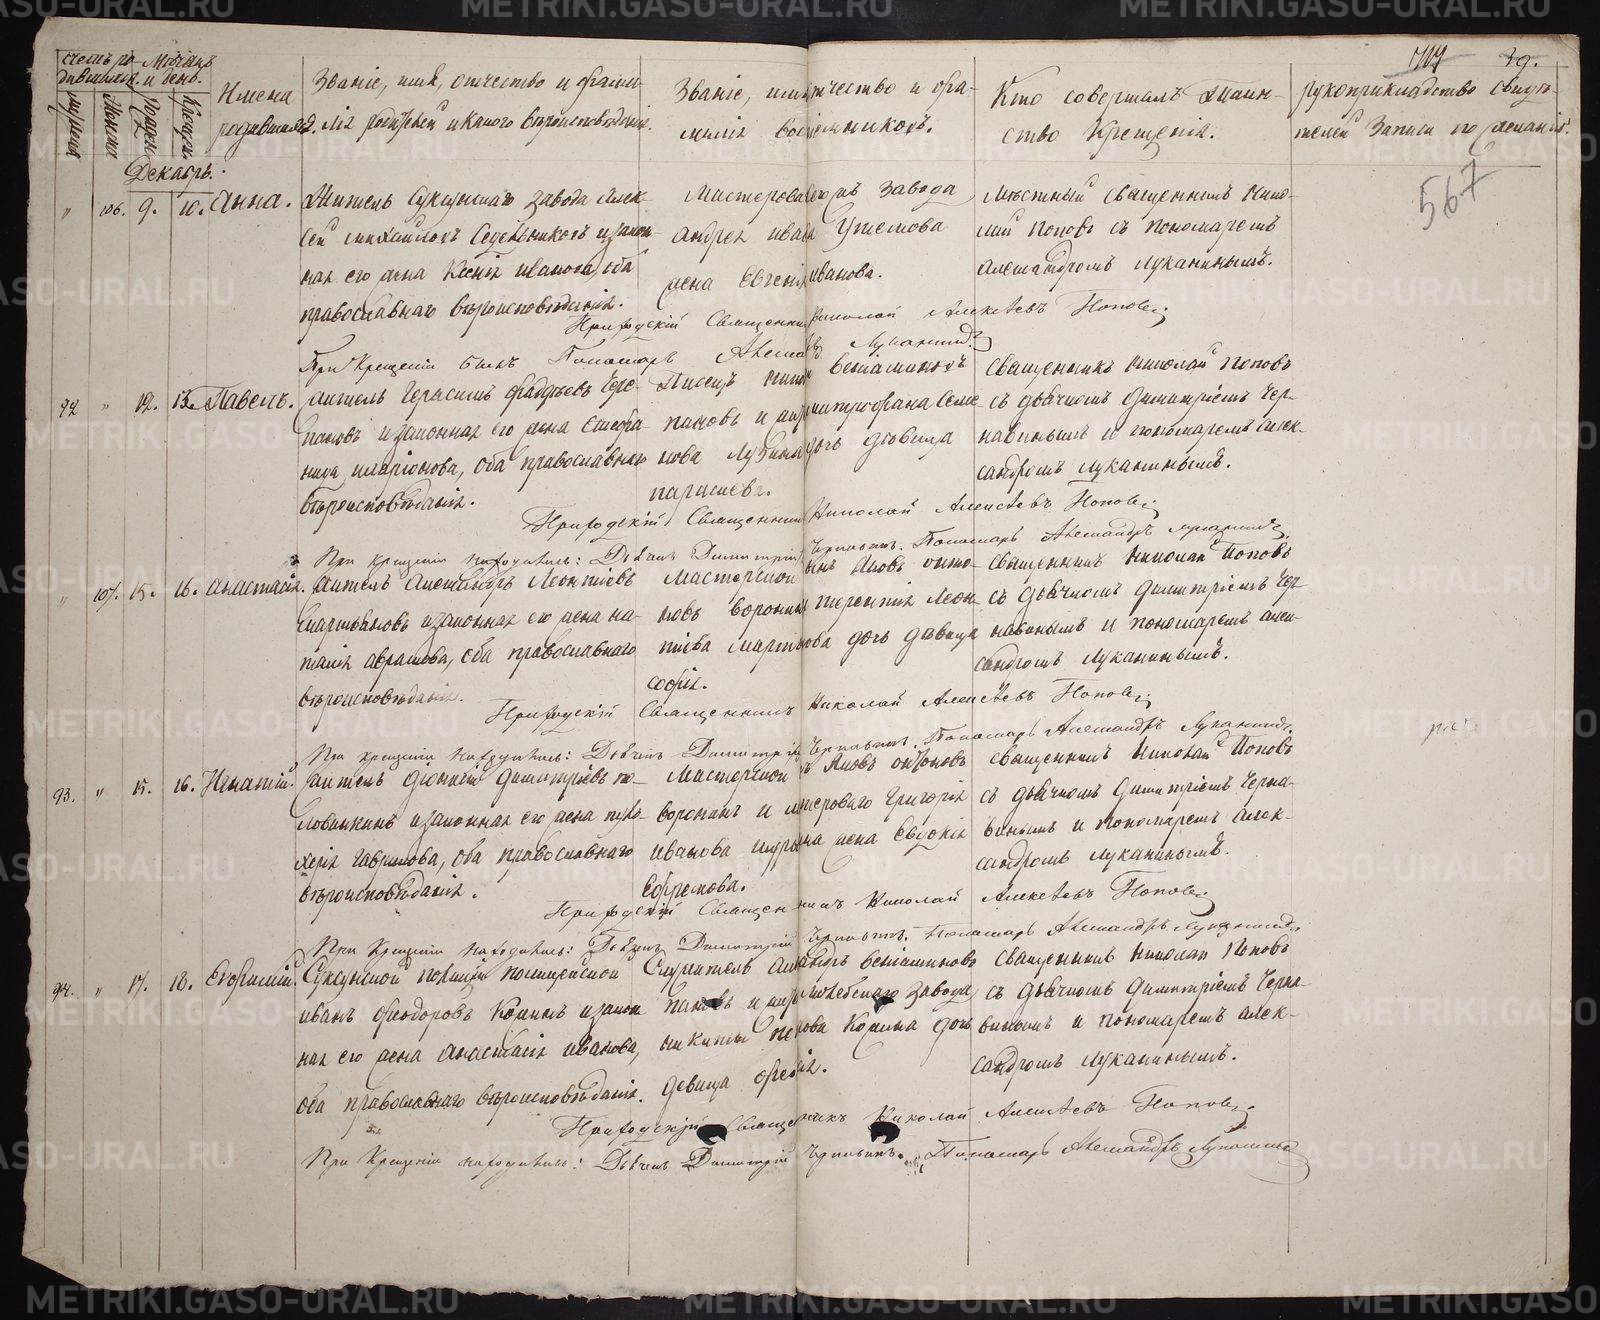 METRIKI.GASO-URAL.RU
счетъ ро- Мѣсяцъ
дившихся. и день.
Имена родившихся.
Званіе, имя, отчество и фами-
лія родителей и какого вѣроисповѣданія.
Званіе, имя, отчество и фа-
милія воспріемниковъ.
Кто совершалъ таин-
ство Крещенія.
Рукоприкладство свидѣ-
телей записи по желанію.
39.
567
Декабрь.
" 106. 9. 10. Анна.
Житель Суксунскаго завода Алек-
сѣй Михайловъ Седельниковъ и закон-
ная его жена Ксенія Иванова, оба
православнаго вѣроисповѣданія.
Мастероваго съ завода
Андрея Ивана Утемова
жена Евгенія Иванова.
Мѣстный священникъ Нико-
лай Поповъ съ пономаремъ
Александромъ Луканинымъ.
Приходскій Священникъ Николай Алексѣевъ Поповъ
При Крещеніи былъ Пономарь Александръ Луканинъ
92. " 12. 13. Павелъ.
Житель Герасимъ Фаддѣевъ Чере-
пановъ и законная его жена Стефа-
нида Иларіонова, оба православнаго
вѣроисповѣданія.
Писецъ Веніаминовъ
пановъ и Митрофана Семе
нова Лузина дочь дѣвица
параскева.
Священникъ Николай Поповъ
съ дьячкомъ Димитріемъ Чер-
навинымъ и пономаремъ Алек-
сандромъ Луканинымъ.
Приходскій Священникъ Николай Алексѣевъ Поповъ
При крещеніи находились: Дьячекъ Димитрій Чернавинъ. Пономарь Александръ Луканинъ
" 107. 15. 16. Анастасія.
Житель Александръ Леонтіевъ
Мартьяновъ и законная его жена На-
талія Аврамова, оба православнаго
вѣроисповѣданія.
Мастерской Яковъ Анто-
новъ Воронинъ Терентія Леон-
тіева Мартьянова дочь дѣвица
Софія.
Священникъ Николай Поповъ
съ дьячкомъ Димитріемъ Чер-
навинымъ и пономаремъ Алек-
сандромъ Луканинымъ.
Приходскій Священникъ Николай Алексѣевъ Поповъ
При крещеніи находились: Дьячекъ Димитрій Чернавинъ. Пономарь Александръ Луканинъ
93. " 15. 16. Игнатій.
Житель Діонисій Димитріевъ По-
ловинкинъ и законная его жена Пуль-
херія Гаврилова, оба православнаго
вѣроисповѣданія.
Мастерской Яковъ Антоновъ
Воронинъ и мастероваго Григорія
Иванова жена Евдокія
Ефремова.
Священникъ Николай Поповъ
съ дьячкомъ Димитріемъ Черна-
винымъ и пономаремъ Алек-
сандромъ Луканинымъ.
Приходскій Священникъ Николай Алексѣевъ Поповъ
При Крещеніи находились: Дьячекъ Димитрій Чернавинъ. Пономарь Александръ Луканинъ
94. " 17. 18. Евфимій.
Суксунской полиціи полицейской
Иванъ Феодоровъ Коминъ и закон-
ная его жена Анастасія Иванова,
оба православнаго вѣроисповѣданія.
Служитель Веніаминовъ
пановъ и завода
никиты Петрова Комина дочь
девица
Священникъ Николай Поповъ
съ дьячкомъ Димитріемъ Черна-
винымъ и пономаремъ Алек-
сандромъ Луканинымъ.
Приходскій Священникъ Николай Алексѣевъ Поповъ
При Крещеніи находились: Дьячекъ Димитрій Чернавинъ. Пономарь Александръ Луканинъ